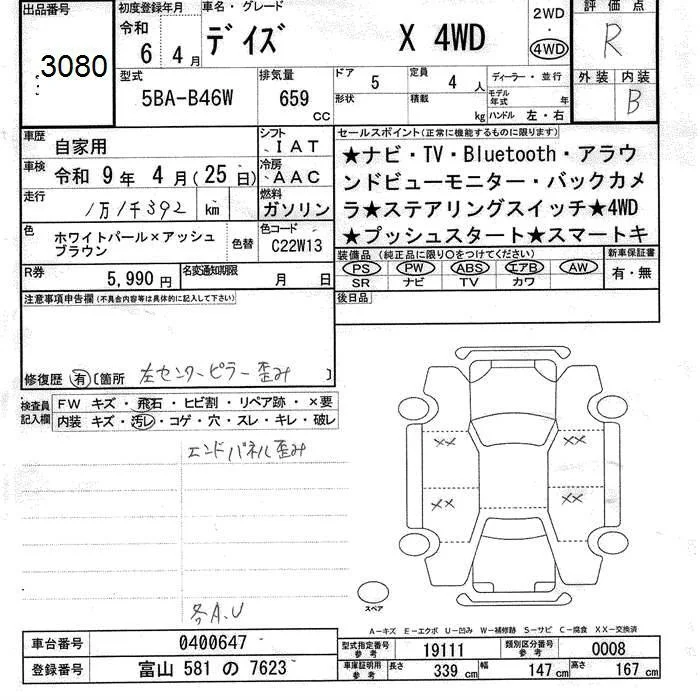 出品番号
3080
初度登録年月
令和
6年 4月
車名・グレード
デイズ X 4WD
2WD
・
4WD
評価点
R
型式
5BA-B46W
排気量
659 CC
ドア 5
定員 4 人
形状
積載 kg
ディーラー・並行
モデル年式 年
ハンドル 左・右
外装 内装
B
車歴 自家用
シフト IAT
車検 令和 9年 4月(25日)
冷房 AAC
走行 1万1千392 km
燃料 ガソリン
色 ホワイトパール×アッシュ
ブラウン
色替
色コード C22W13
R券 5,990円
名変通知期限 月 日
セールスポイント(正常に機能するものに限ります)
★ナビ・TV・Bluetooth・アラウ
ンドビューモニター・バックカメ
ラ★ステアリングスイッチ★4WD
★プッシュスタート★スマートキ
装備品(純正品に限り○をつけてください)
新車保証書
PS PW ABS エアB AW
SR ナビ TV カワ
有・無
後日品
注意事項申告欄(不具合内容等は具体的に記入して下さい)
修復歴 有 [箇所 左センターピラー歪み ]
検査員
記入欄
FW キズ・飛石・ヒビ割・リペア跡・×要
内装 キズ・汚レ・コゲ・穴・スレ・キレ・破レ
エンドパネル歪み
各A.U
XX XX
XX XX
スペア
A-キズ E-エクボ U-凹み W-補修跡 S-サビ C-腐食 XX-交換済
車台番号 0400647
型式指定番号
参考
19111
類別区分番号
参考
0008
登録番号 富山 581 の 7623
車庫証明用
参考
長さ 339 cm 幅 147 cm 高さ 167 cm